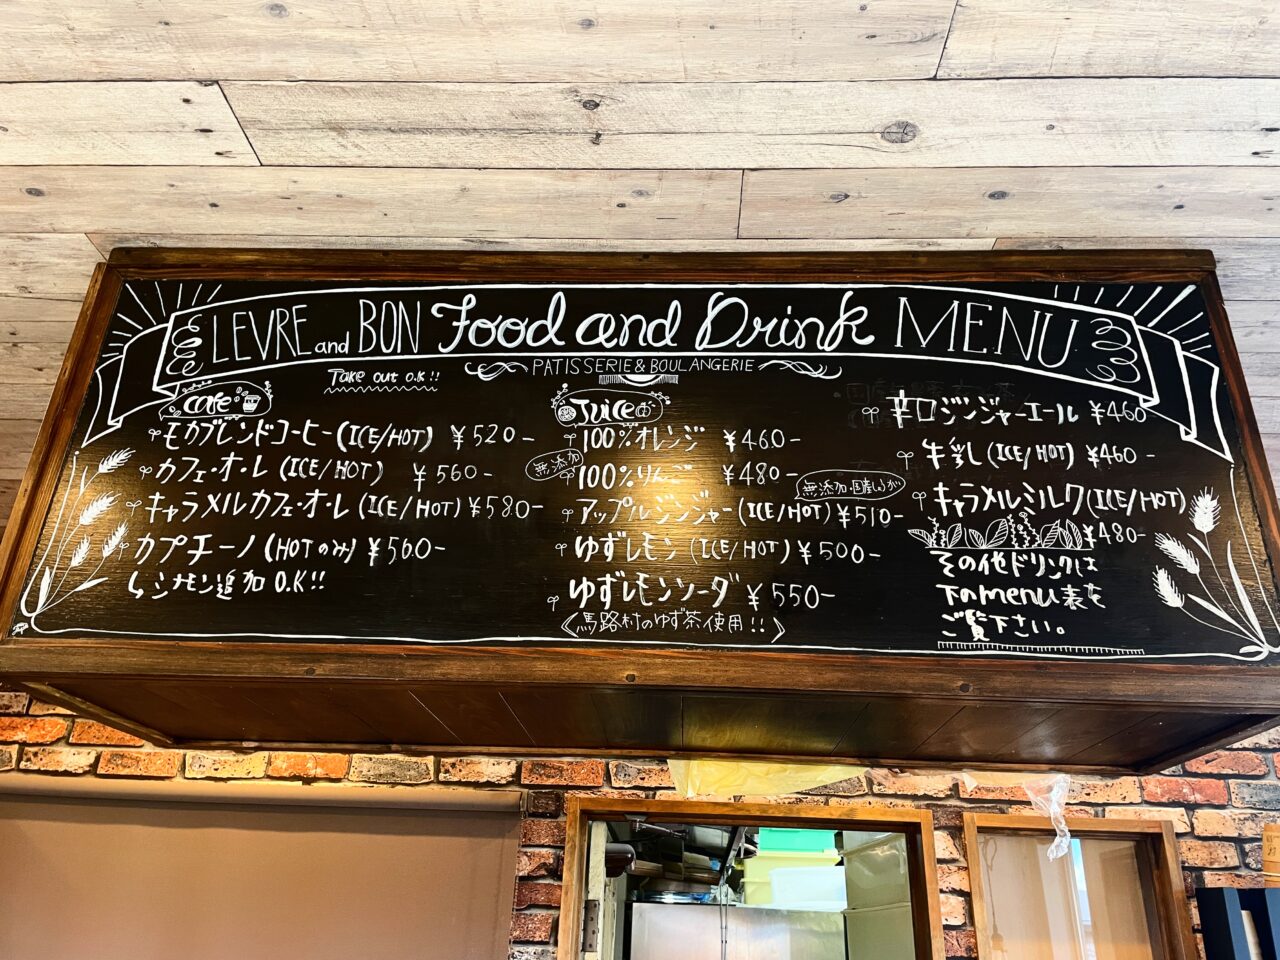 LEVRE and BON Food and Drink MENU
PATISSERIE & BOULANGERIE
Take out O.K!!
Cafe
モカブレンドコーヒー(ICE/HOT) ¥520-
カフェ・オ・レ(ICE/HOT) ¥560-
キャラメルカフェ・オ・レ(ICE/HOT) ¥580-
カプチーノ(HOTのみ) ¥560-
↳シナモン追加O.K!!
Juice
100%オレンジ ¥460-
無添加
100%りんご ¥480-
無添加・国産しょうが
アップルジンジャー(ICE/HOT) ¥510-
ゆずレモン(ICE/HOT) ¥500-
ゆずレモンソーダ ¥550-
〈馬路村のゆず茶使用!!〉
辛口ジンジャーエール ¥460
牛乳(ICE/HOT) ¥460-
キャラメルミルク(ICE/HOT)
¥480-
その他ドリンクは
下のmenu表を
ご覧下さい。